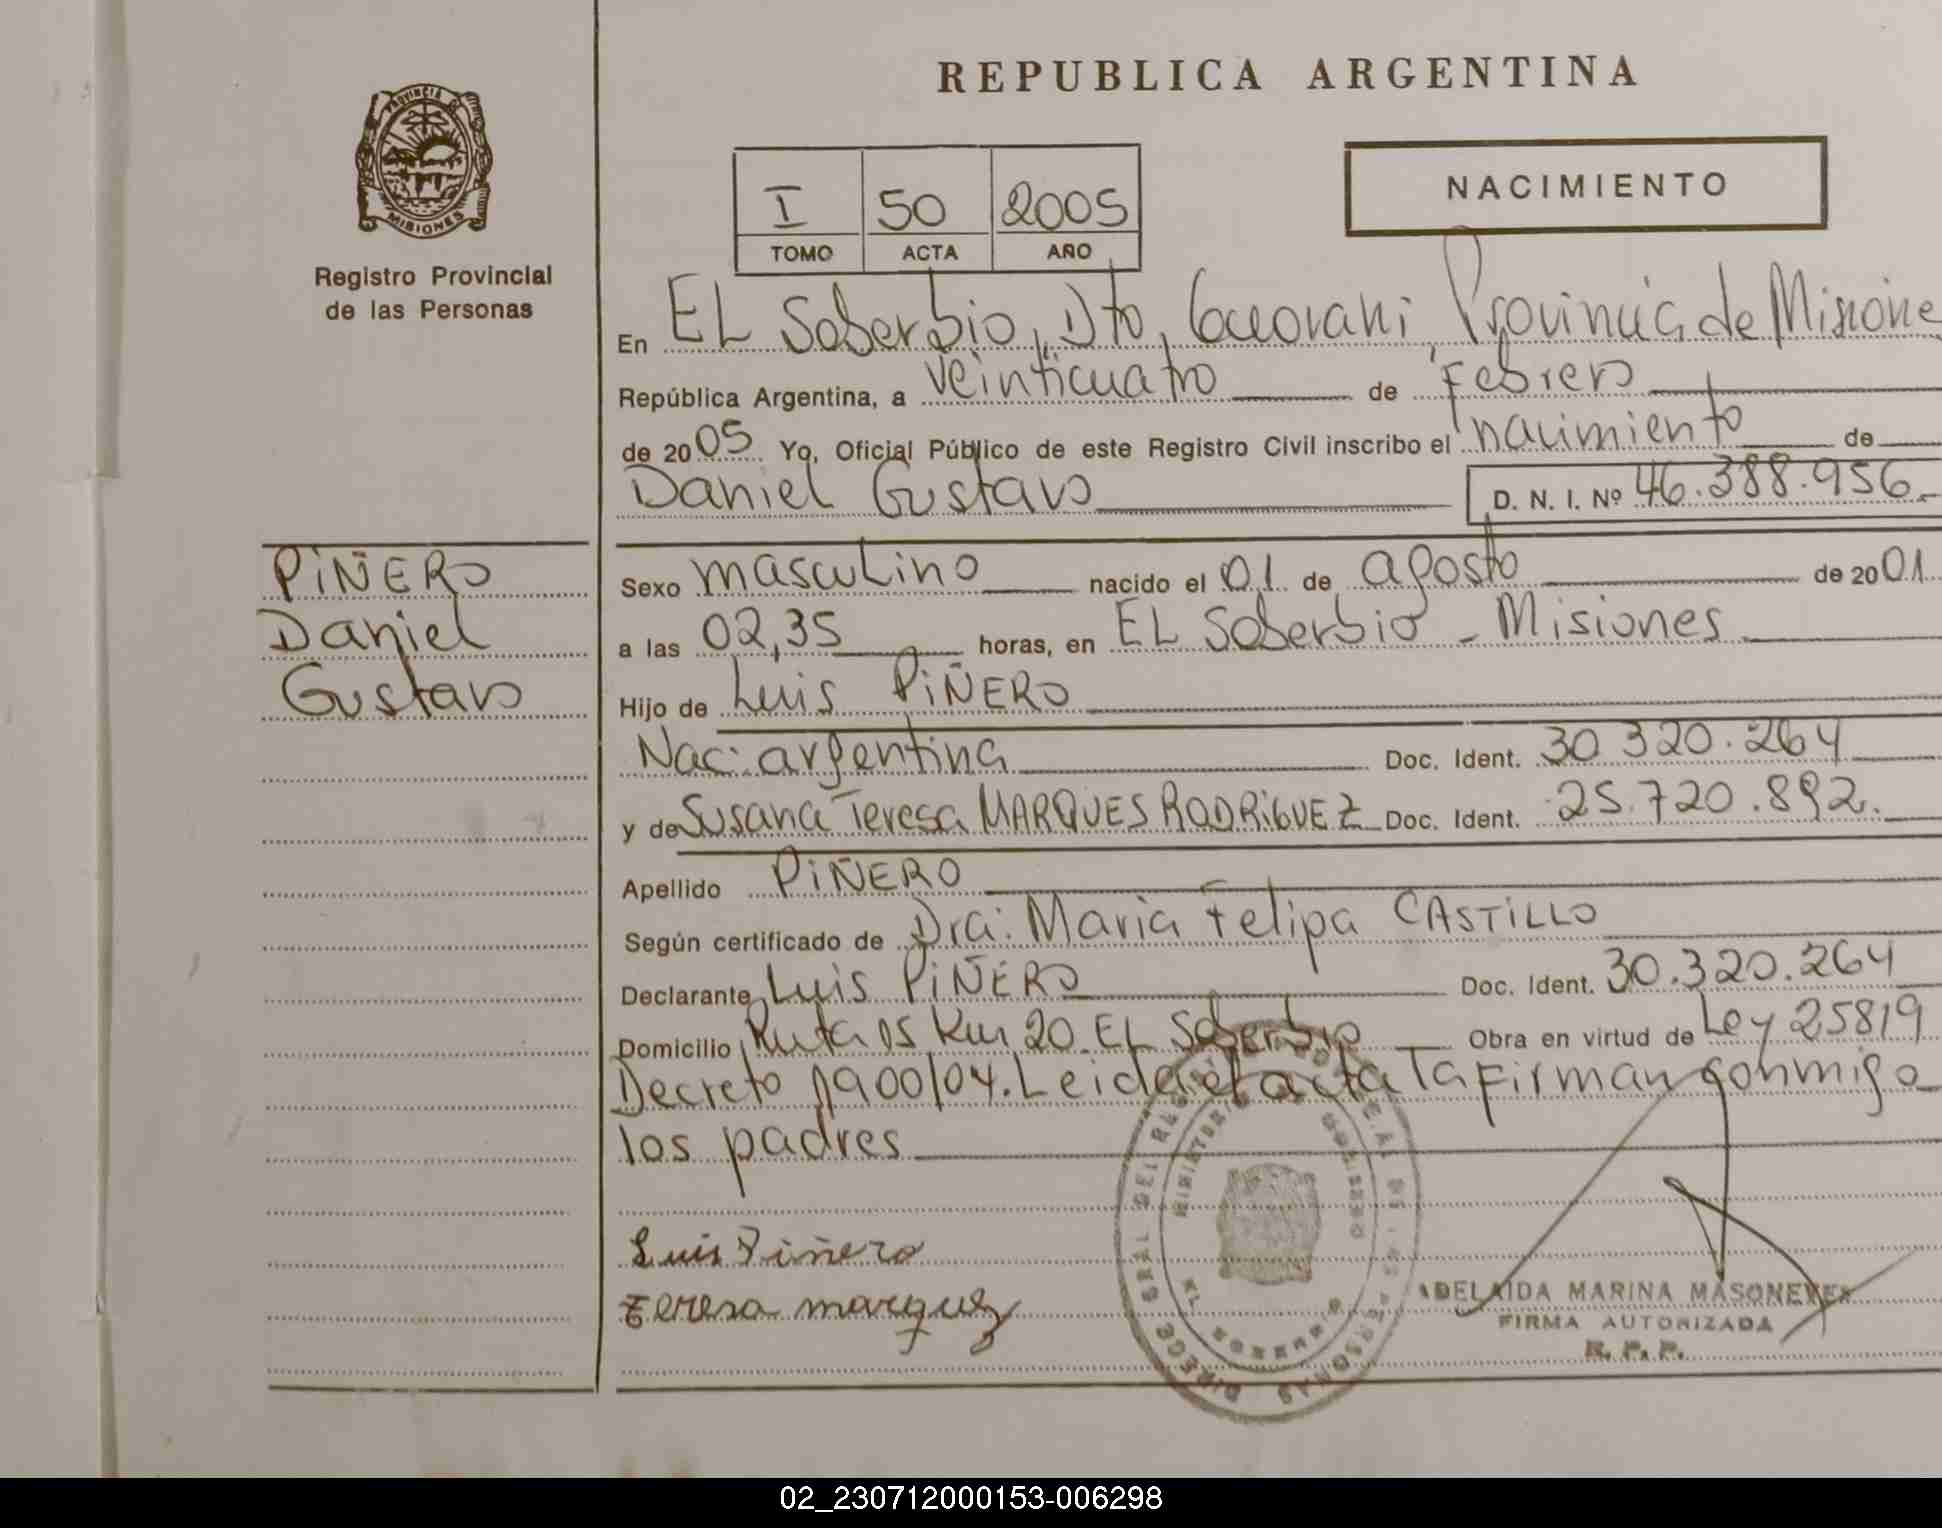 REPUBLICA ARGENTINA
PROVINCIA
MISIONES
Registro Provincial
de las Personas
I 50 2005
TOMO ACTA AÑO
NACIMIENTO
En EL Soberbio, Dto, Guarani Provincia de Misione
República Argentina, a veinticuatro de Febrero
de 2005 Yo, Oficial Público de este Registro Civil inscribo el nacimiento de
Daniel Gustavo D. N. I. Nº 46.388.956
PIÑERO
Daniel
Gustavo
Sexo masculino nacido el 01 de agosto de 2001
a las 02,35 horas, en EL Soberbio - Misiones
Hijo de Luis PIÑERO
Nac: argentina Doc. Ident. 30 320.264
y de Susana Teresa MARQUES RODRIGUEZ Doc. Ident. 25.720.892.
Apellido PIÑERO
Según certificado de Dra: Maria Felipa CASTILLO
Declarante Luis PIÑERO Doc. Ident. 30.320.264
Domicilio Ruta 05 Km 20 EL Soberbio Obra en virtud de Ley 25819
Decreto 1900/04. Leida el acta la firman conmigo
los padres
Luis Piñero
Teresa marquez
ADELAIDA MARINA MASONEVES
FIRMA AUTORIZADA
R. P. P.
02_230712000153-006298